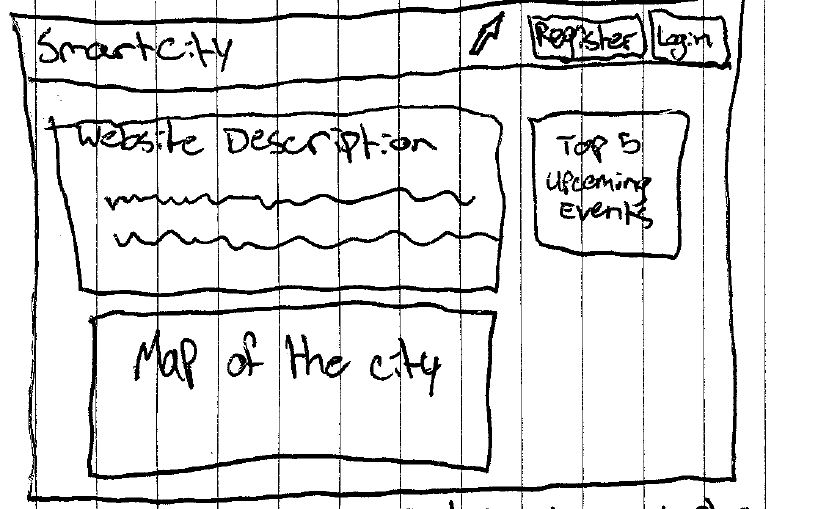 SmartCity
Register
Login
Website Description
Top 5
Upcoming
Events
Map of the city